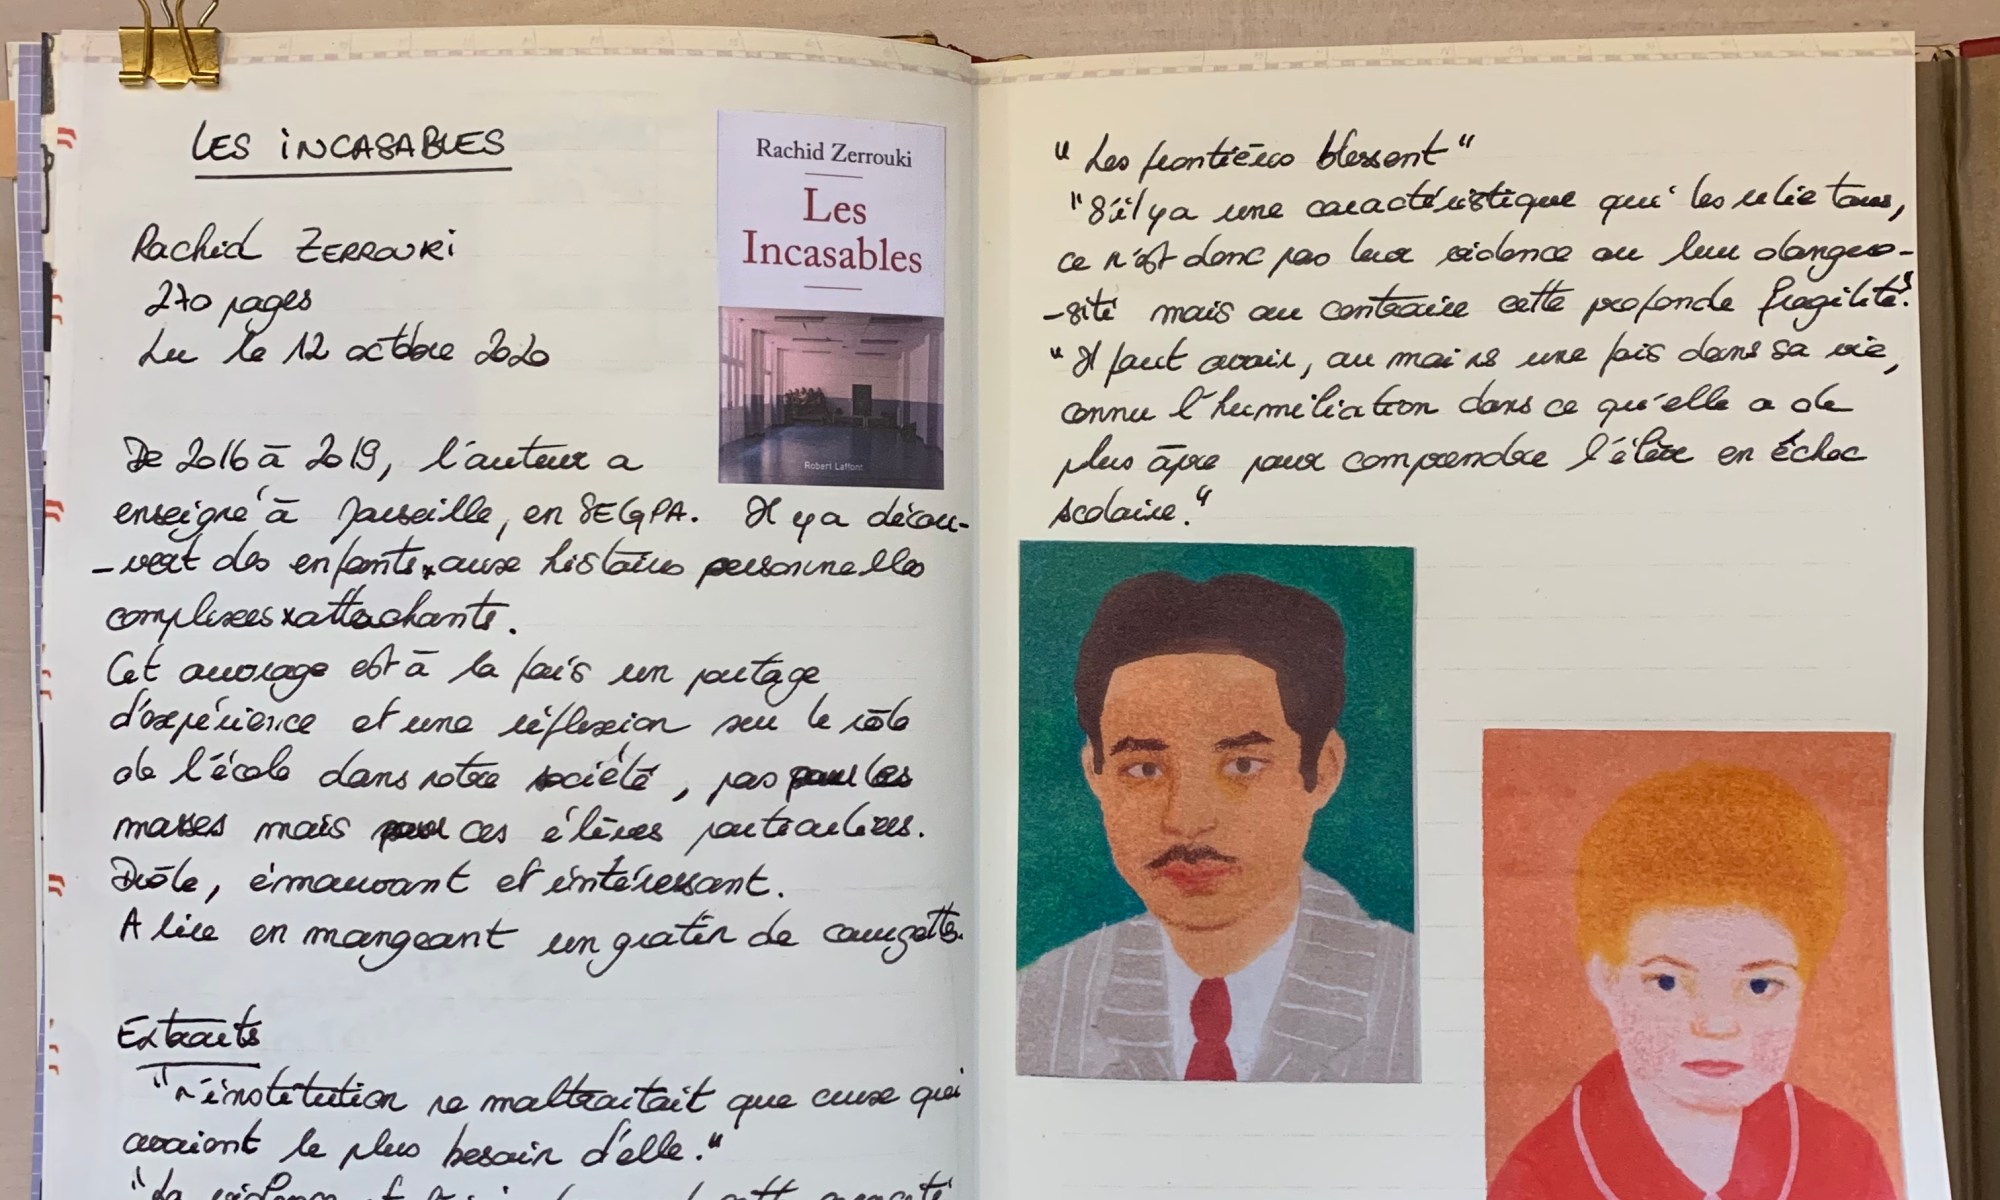 LES INCASABLES
Rachid ZERROUKI
270 pages
Lu le 12 octobre 2020
Rachid Zerrouki
Les
Incasables
Robert Laffont
De 2016 à 2019, l'auteur a
enseigné à Marseille, en SEGPA. Il y a décou-
-vert des enfants aux histoires personnelles
complexes attachants.
Cet ouvrage est à la fois un partage
d'expérience et une réflexion sur le rôle
de l'école dans notre société, pas pour les
masses mais pour ces élèves particuliers.
Drôle, émouvant et intéressant.
A lire en mangeant un gratin de courgette.
Extraits
"L'institution ne maltraitait que ceux qui
avaient le plus besoin d'elle."
"La violence
"Les frontières blessent"
"S'il y a une caractéristique qui les relie tous,
ce n'est donc pas leur violence ou leur dangero-
-sité mais au contraire cette profonde fragilité."
"Il faut avoir, au moins une fois dans sa vie,
connu l'humiliation dans ce qu'elle a de
plus âpre pour comprendre l'élève en échec
scolaire."